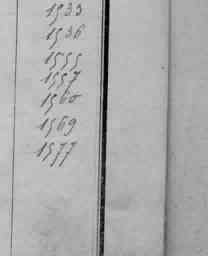 1533
1536
1555
1557
1560
1569
1577